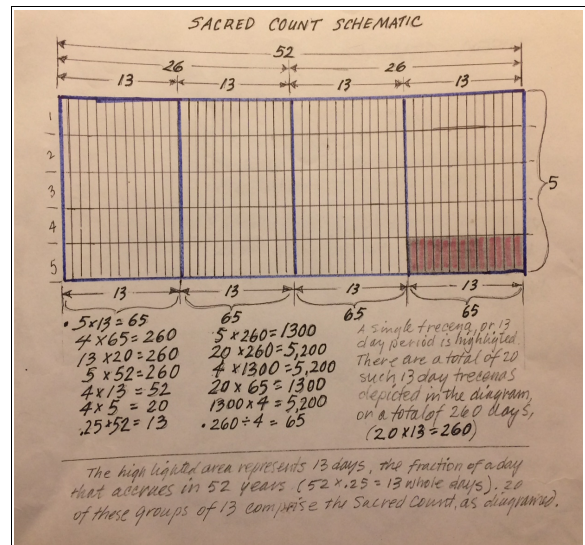 SACRED COUNT SCHEMATIC
52
26 26
13 13 13 13
1
2
3
4
5
5
13 13 13 13
65 65 65
. 5x13=65
4 x65=260
13 x20=260
5 x52=260
4x13=52
4x5 = 20
.25x52=13
5 x260=1300
20 x260=5,200
4 x1300=5,200
20 x 65=1300
1300x4=5,200
.260÷4=65
A single trecena, or 13
day period is highlighted.
There are a total of 20
such 13 day trecenas
depicted in the diagram,
or a total of 260 days,
(20x13=260)
The highlighted area represents 13 days, the fraction of a day
that accrues in 52 years (52x.25=13 whole days). 20
of these groups of 13 comprise the Sacred Count, as diagramed.